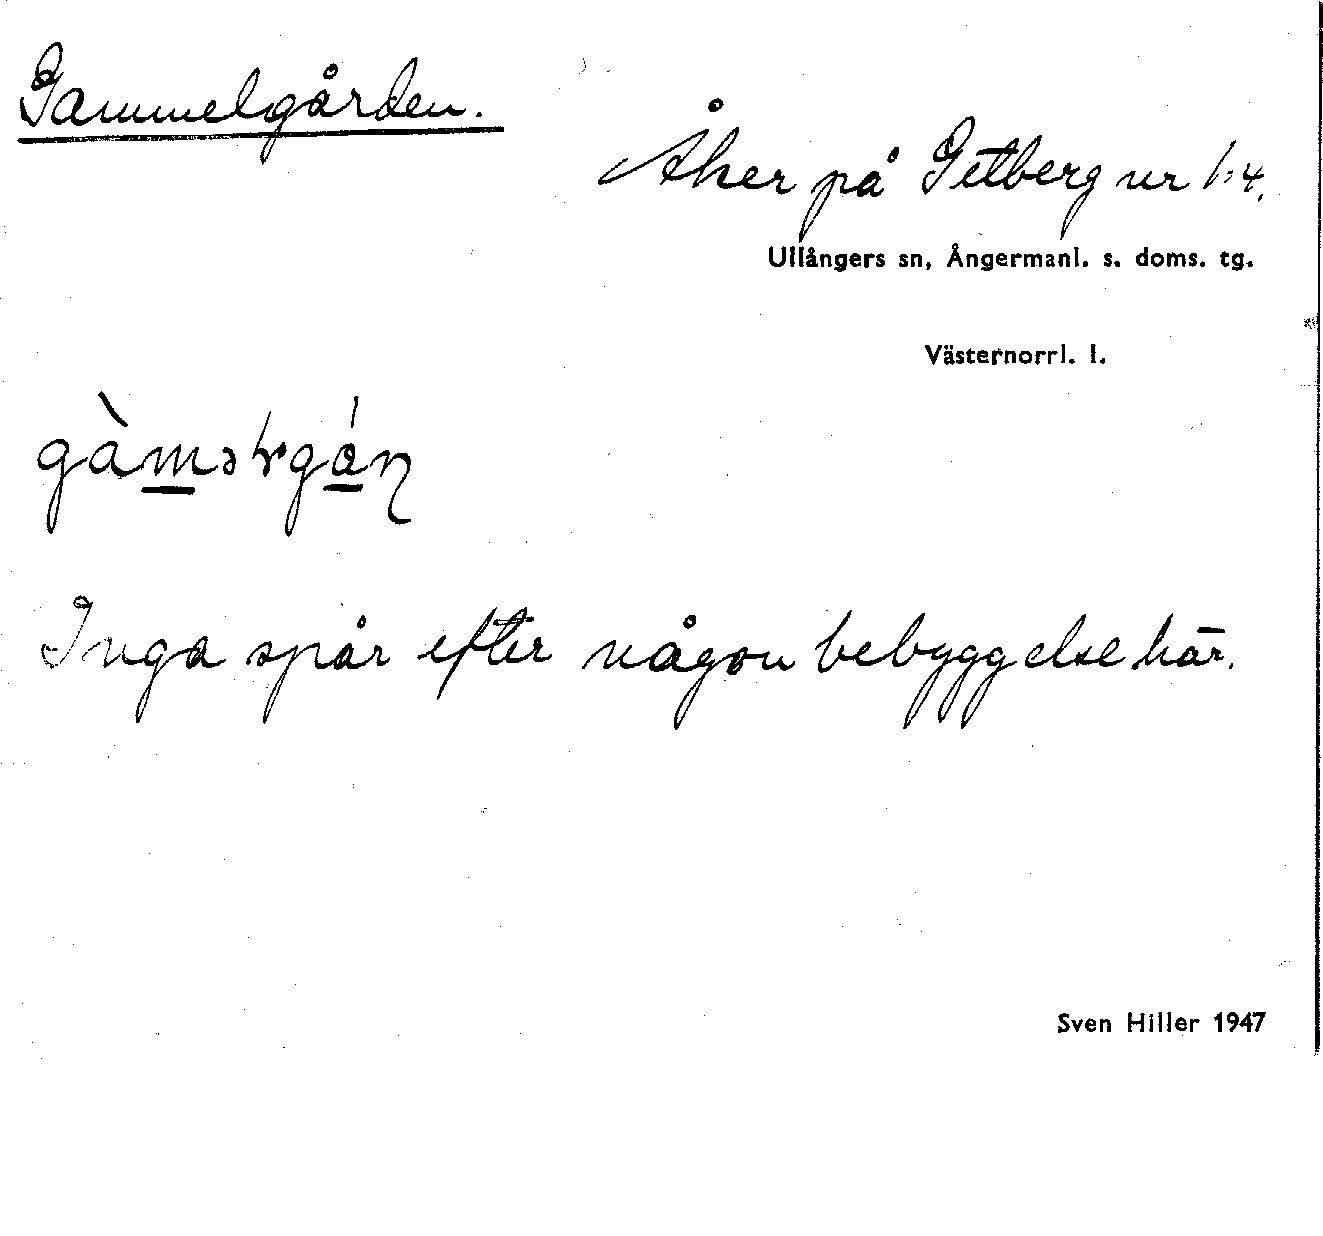 Gammelgården.
Åker på Getberg nr 1:4.
Ullångers sn, Ångermanl. s. doms. tg.
Västernorrl. l.
Inga spår efter någon bebyggelse här.
Sven Hiller 1947